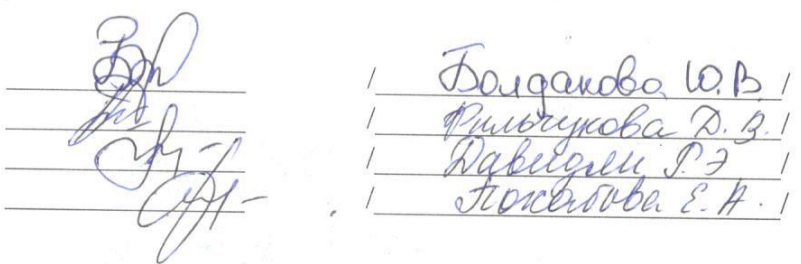 / Болдакова Ю.В. /
/ Рильчукова Д.В. /
/ Давидян Г.Э /
/ Похабова Е.А. /